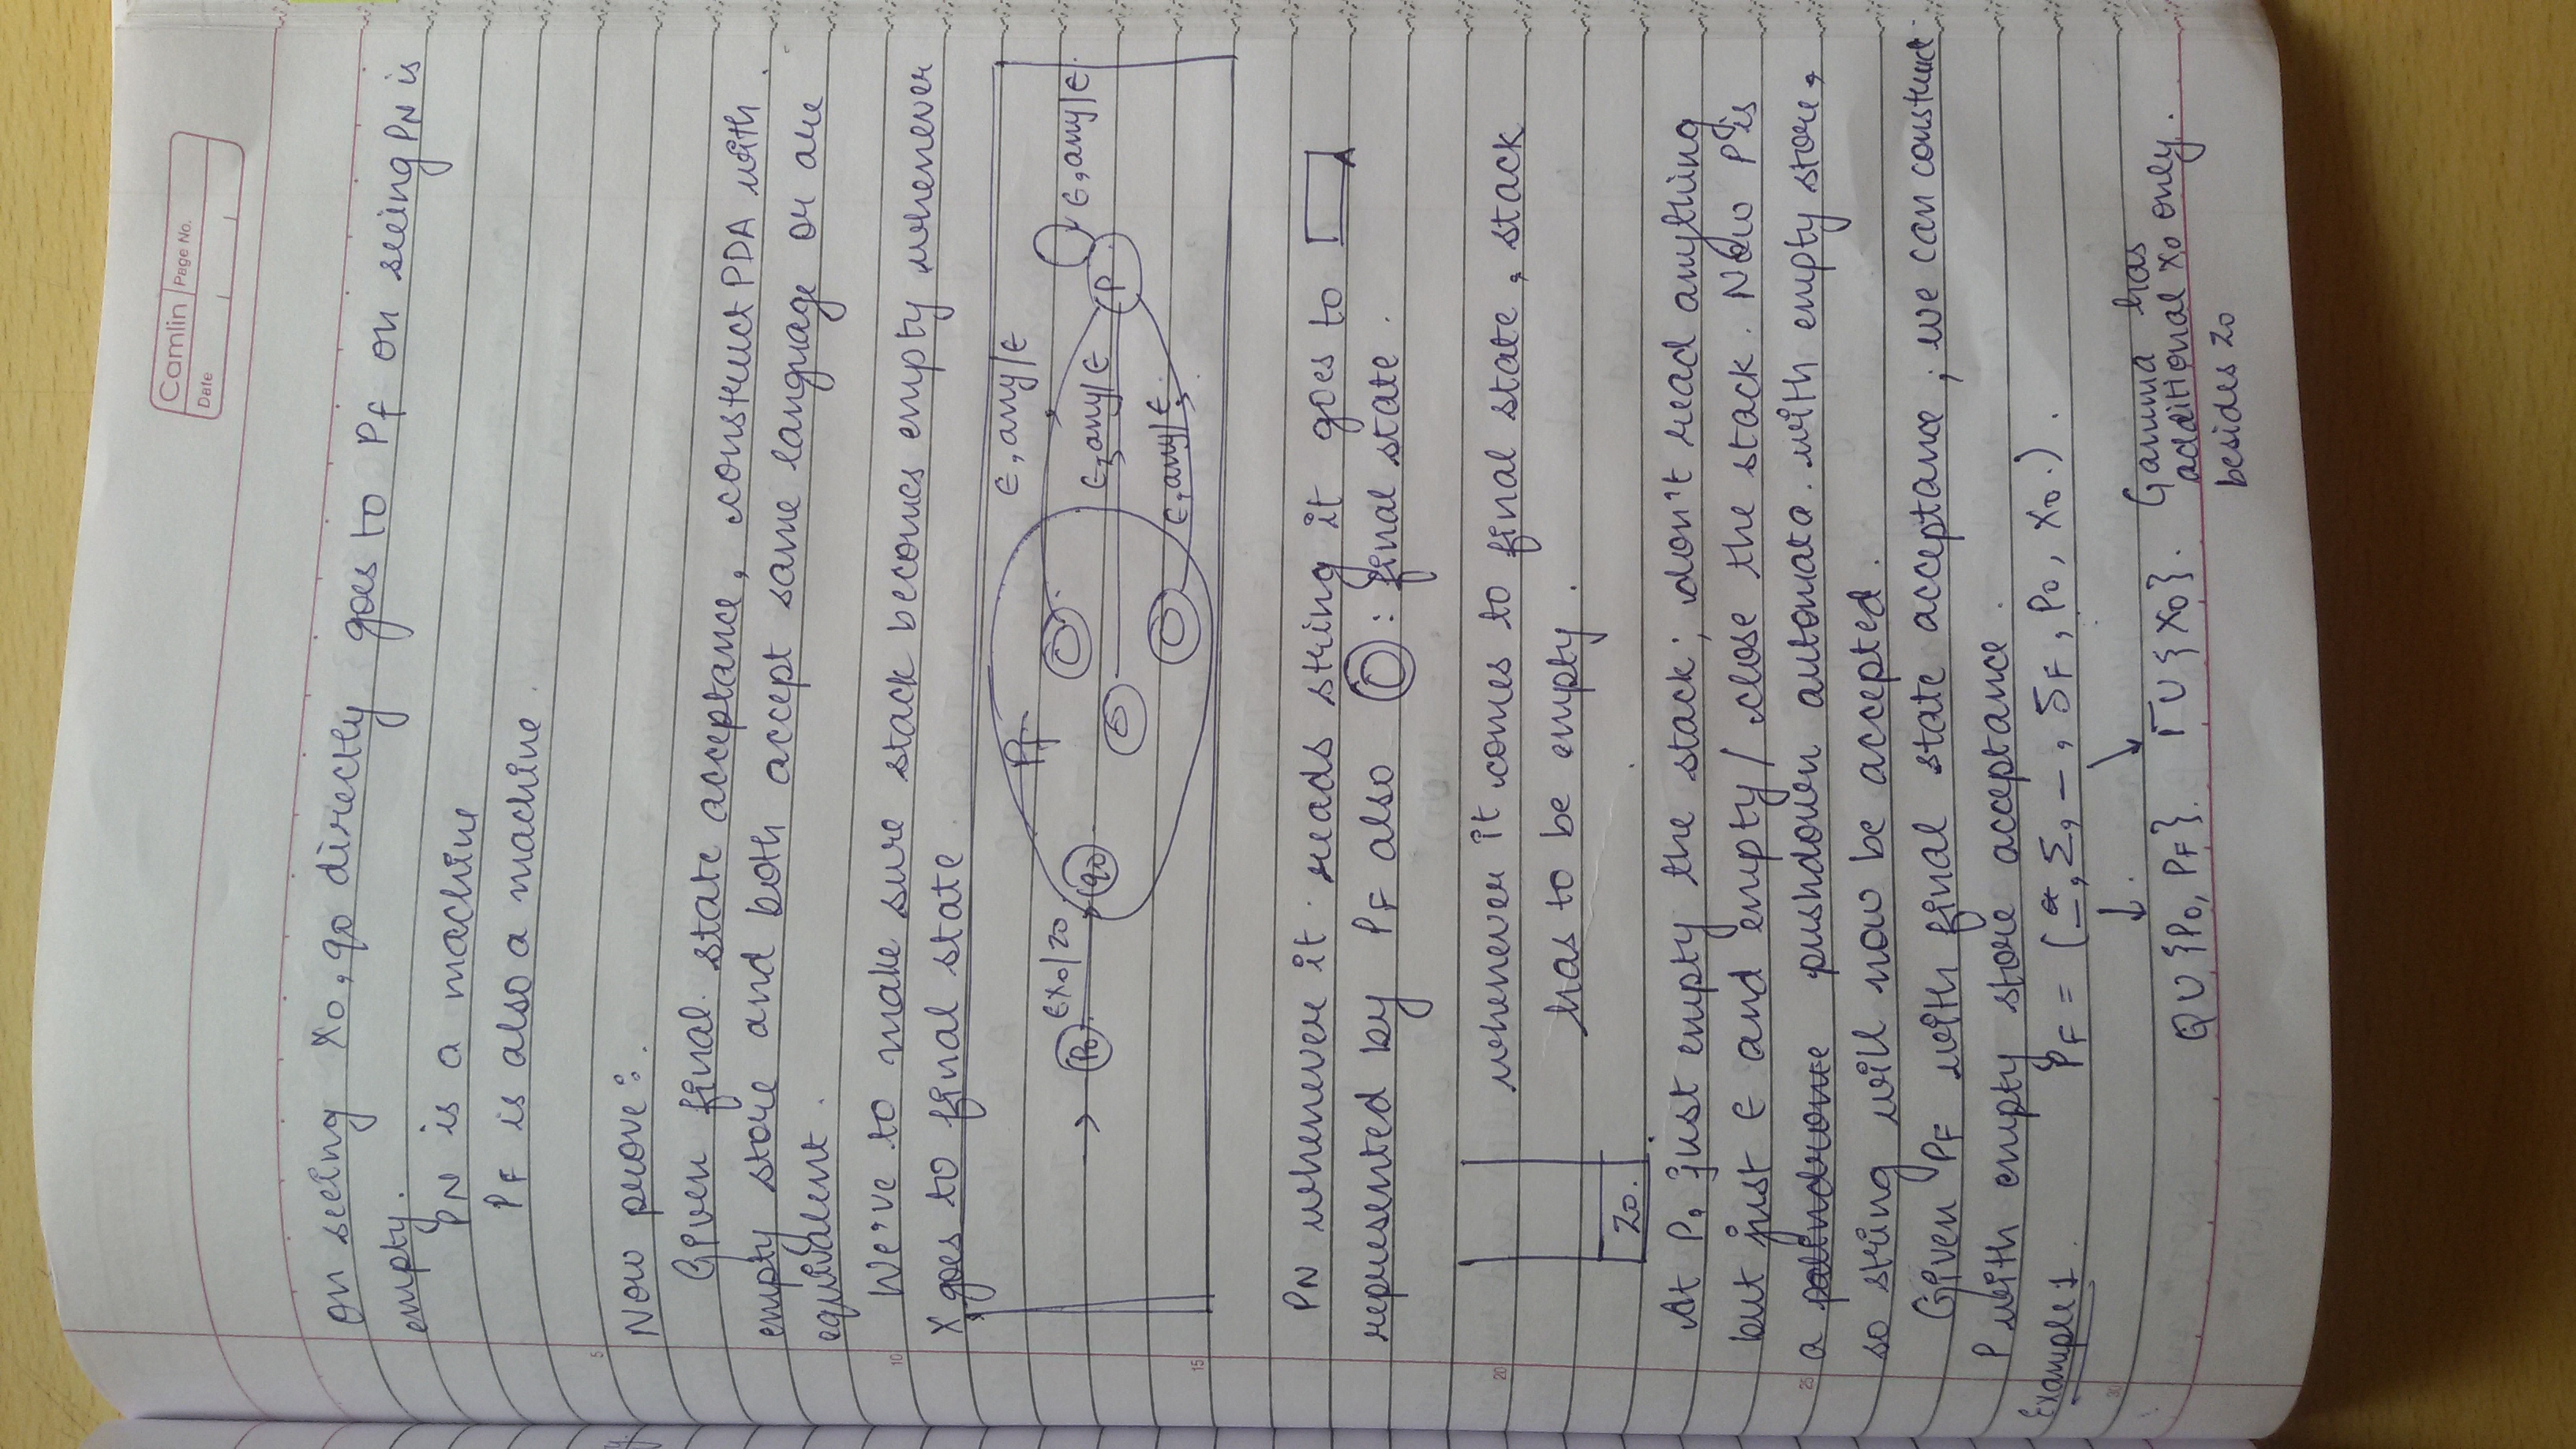 Camlin Page No.
Date
on seeing X0, q0 directly goes to PF on seeing PN is
empty.
PN is a machine
PF is also a machine.
5
Now prove:.
Given final state acceptance, construct PDA with
empty store and both accept same language or are
equivalent.
10
We've to make sure stack becomes empty whenever
X goes to final state.
Pf
ϵ, any/ϵ
P0 ϵX0/Z0 q0
ϵ, any/ϵ P ϵ, any/ϵ
ϵ, any/ϵ
15
PN whenever it reads string it goes to
represented by PF also : final state.
20
whenever it comes to final state, stack
has to be empty.
Z0.
At P, just empty the stack; don't read anything
but just ϵ and empty/close the stack. Now P is
25
a palindrome pushdown automata with empty store,
so string will now be accepted.
Given PF with final state acceptance; we can construct
P with empty store acceptance.
Example 1. PF = (_, Σ, _, δF, P0, X0.).
30
QU{P0, PF}. ΓU{X0}. Gamma has
additional X0 only.
besides Z0